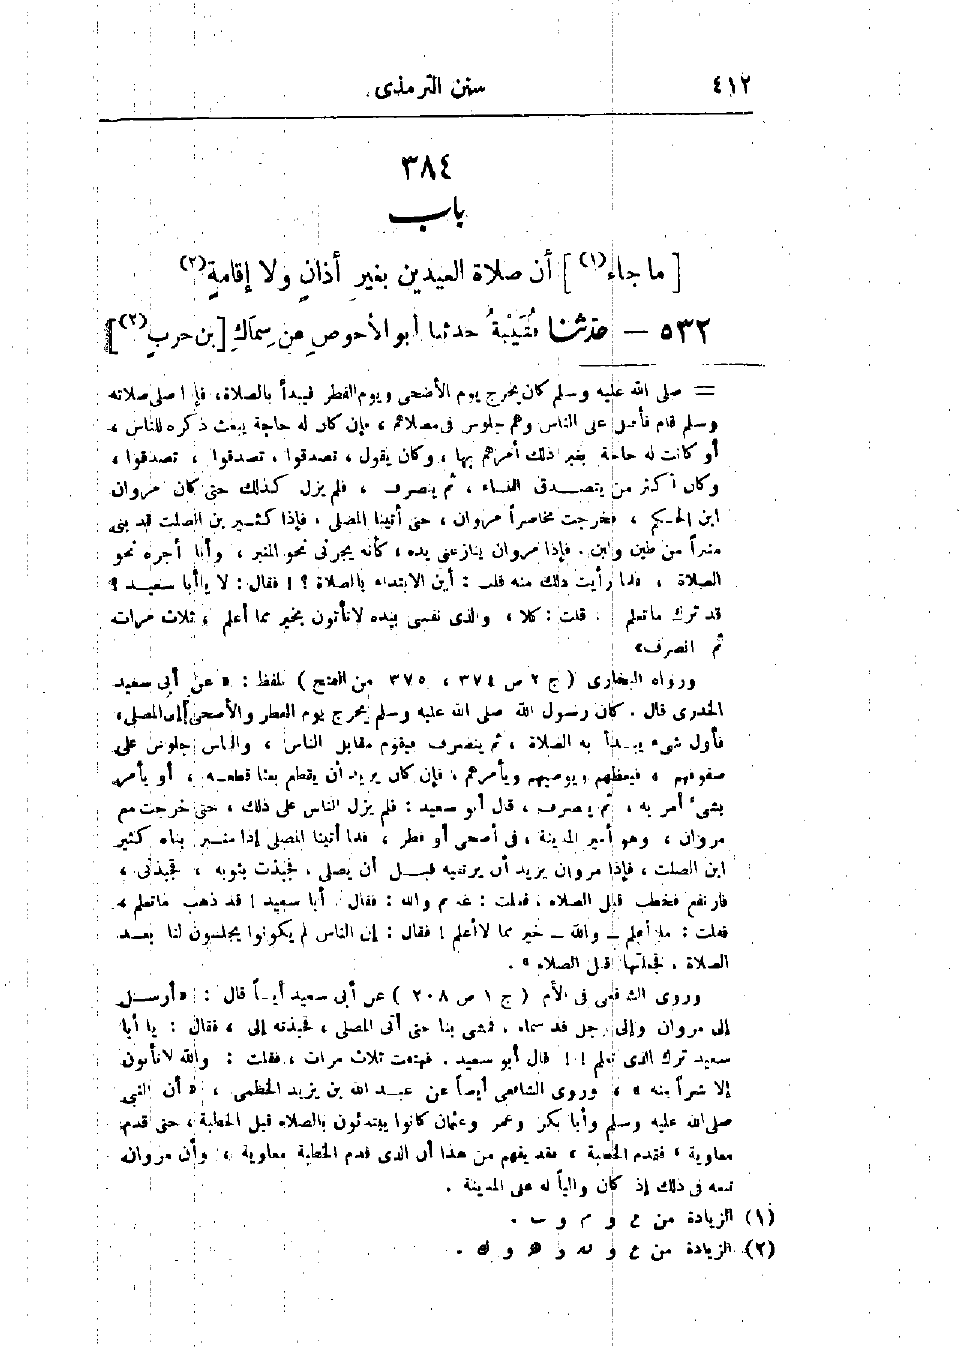 ٤١٢
سنن الترمذى
٣٨٤
باب
[ ما جاء(١) ] أن صلاة العيدين بغير أذان ولا إقامة(٢)
٥٣٢ — حدثنا قُتَيْبَةُ حدثنا أبو الأحوص عن سماك [ بن حرب(٢) ]
= صلى الله عليه وسلم كان يخرج يوم الأضحى ويوم الفطر فيبدأ بالصلاة، فإذا صلى صلاته
وسلم قام فأقبل على الناس وهم جلوس فى مصلاهم ، فإن كان له حاجة يبعث ذكره للناس ،
أو كانت له حاجة بغير ذلك أمرهم بها ، وكان يقول ، تصدقوا ، تصدقوا ، تصدقوا ،
وكان أكثر من يتصدق النساء ، ثم ينصرف ، فلم يزل كذلك حتى كان مروان
ابن الحكم ، فخرجت مخاصراً مروان ، حتى أتينا المصلى ، فإذا كثير بن الصلت قد بنى
منبراً من طين ولبن . فإذا مروان ينازعنى يده ، كأنه يجرنى نحو المنبر ، وأنا أجره نحو
الصلاة ، فلما رأيت ذلك منه قلت : أين الابتداء بالصلاة ؟ ! فقال : لا يا أبا سعيد ؟
قد ترك ما تعلم ! . قلت : كلا ، والذى نفسى بيده لا تأتون بخير مما أعلم ، ثلاث مرات
ثم انصرف»
ورواه البخارى ( ج ٢ ص ٣٧٤ ، ٣٧٥ من الفتح ) بلفظ : « عن أبى سعيد
الخدرى قال . كان رسول الله صلى الله عليه وسلم يخرج يوم الفطر والأضحى إلى المصلى ،
فأول شىء يبدأ به الصلاة ، ثم ينصرف فيقوم مقابل الناس ، والناس جلوس على
صفوفهم ، فيعظهم ويوصيهم ويأمرهم ، فإن كان يريد أن يقطع بعثا قطعه ، أو يأمر
بشىء أمر به ، ثم ينصرف ، قال أبو سعيد : فلم يزل الناس على ذلك ، حتى خرجت مع
مروان ، وهو أمير المدينة ، فى أضحى أو فطر ، فلما أتينا المصلى إذا منبر بناه كثير
ابن الصلت ، فإذا مروان يريد أن يرتقيه قبل أن يصلى . فجبذت بثوبه ، فجبذنى ،
فارتفع فخطب قبل الصلاة ، فقلت : غيرتم والله : فقال . أبا سعيد ! قد ذهب ما تعلم ،
فقلت : ما أعلم ــ والله ــ خير مما لا أعلم ! فقال : إن الناس لم يكونوا يجلسون لنا بعد
الصلاة ، فجعلتها قبل الصلاة » .
وروى الشافعى فى الأم ( ج ١ ص ٢٠٨ ) عن أبى سعيد أيضاً قال : « أرسل
إلى مروان وإلى رجل قد سماه ، فمشى بنا حتى أتى المصلى ، فجبذته إلى ، فقال : يا أبا
سعيد ترك الذى تعلم ! ! قال أبو سعيد . فهتفت ثلاث مرات ، فقلت : والله لا تأتون
إلا شراً منه » ، وروى الشافعى أيضاً عن عبد الله بن يزيد الخطمى ، « أن النبى
صلى الله عليه وسلم وأبا بكر وعمر وعثمان كانوا يبتدئون بالصلاة قبل الخطبة ، حتى قدم
معاوية ، فقدم الخطبة ، فقد يفهم من هذا أن الذى قدم الخطبة معاوية ، وأن مروان
تبعه فى ذلك إذ كان والياً له على المدينة .
(١) الزيادة من ع و م و ب .
(٢) الزيادة من ع و نه و ه و ك .